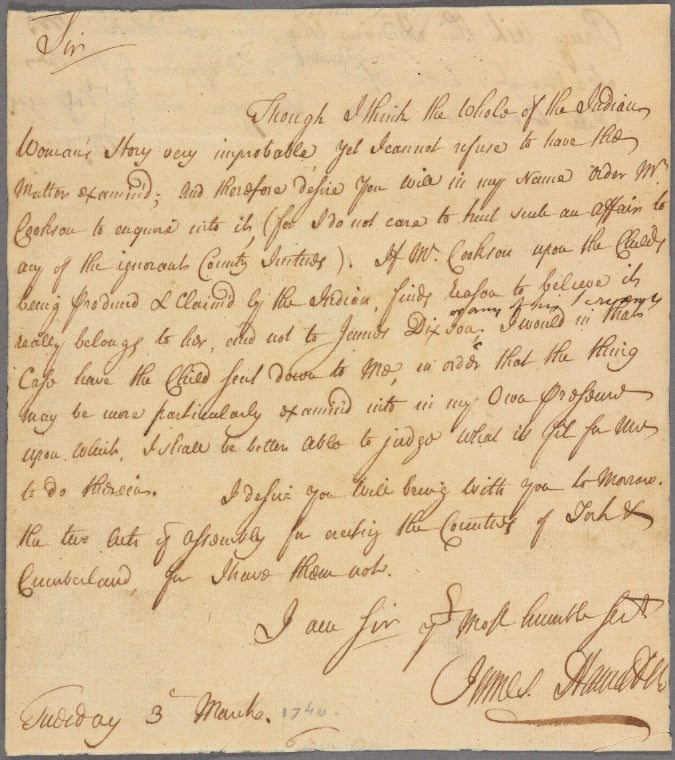 Sir
Though I think the Whole of the Indian
Woman's Story very improbable, yet I cannot refuse to have the
Matter examin'd; And therefore desire You will in my Name order Mr
Cookson to enquire into it, (for I do not care to trust such an Affair to
any of the ignorant County Justices). If Mr. Cookson upon the Childs
being Produced & Claim'd by the Indian, finds reason to believe it
or any of his
really belongs to her, and not to James Dixson; I would in that
Case have the Child sent down to Me, in order that the thing
may be more particularly examin'd into in my Own Presence
upon which, I shall be better Able to judge what is fit for Me
to do therein. I desire you will bring with you to Morrow.
the two Acts of Assembly for erecting the Counties of York &
Cumberland, for I have them not.
I am Sir yr Most humble Sert
James Hamilton
Tuesday 3d March. 1740.